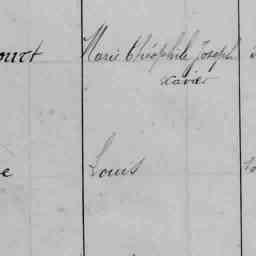 ourt Marie Théophile Joseph
Xavier
e Louis